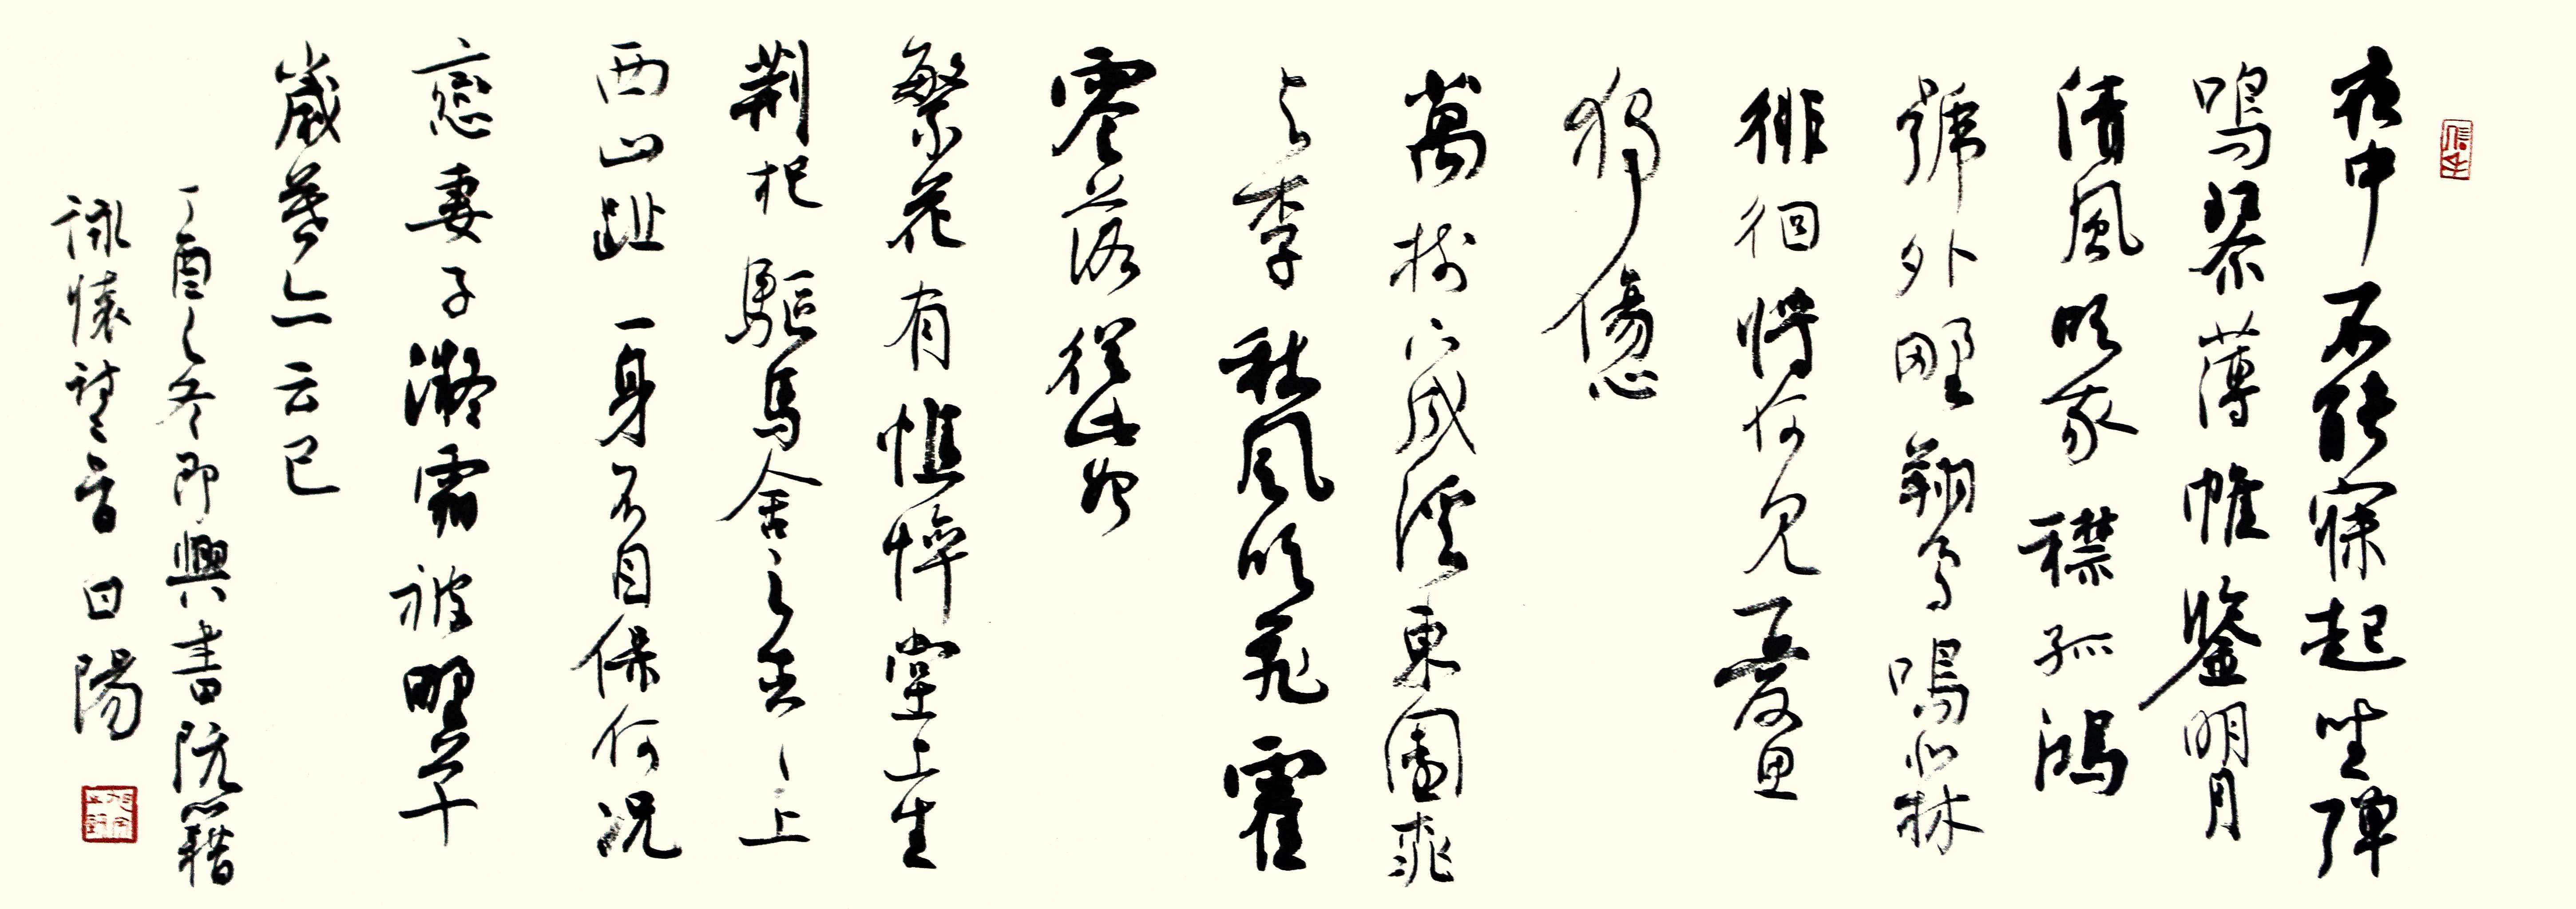 夜中不能寐起坐彈
鳴琴薄帷鑒明月
清風吹我襟孤鴻
號外野翔鳥鳴北林
徘徊將何見憂思
獨傷心
萬樹下成溪東園桃
与李秋風吹飛霍
零落從此始
繁花有憔悴堂上生
荆杞驅馬舍之去〻上
西山趾一身不自保何況
戀妻子凝霜被野草
歲暮亦云已
丁酉之冬即興書阮籍
詠懷詩二首 日陽